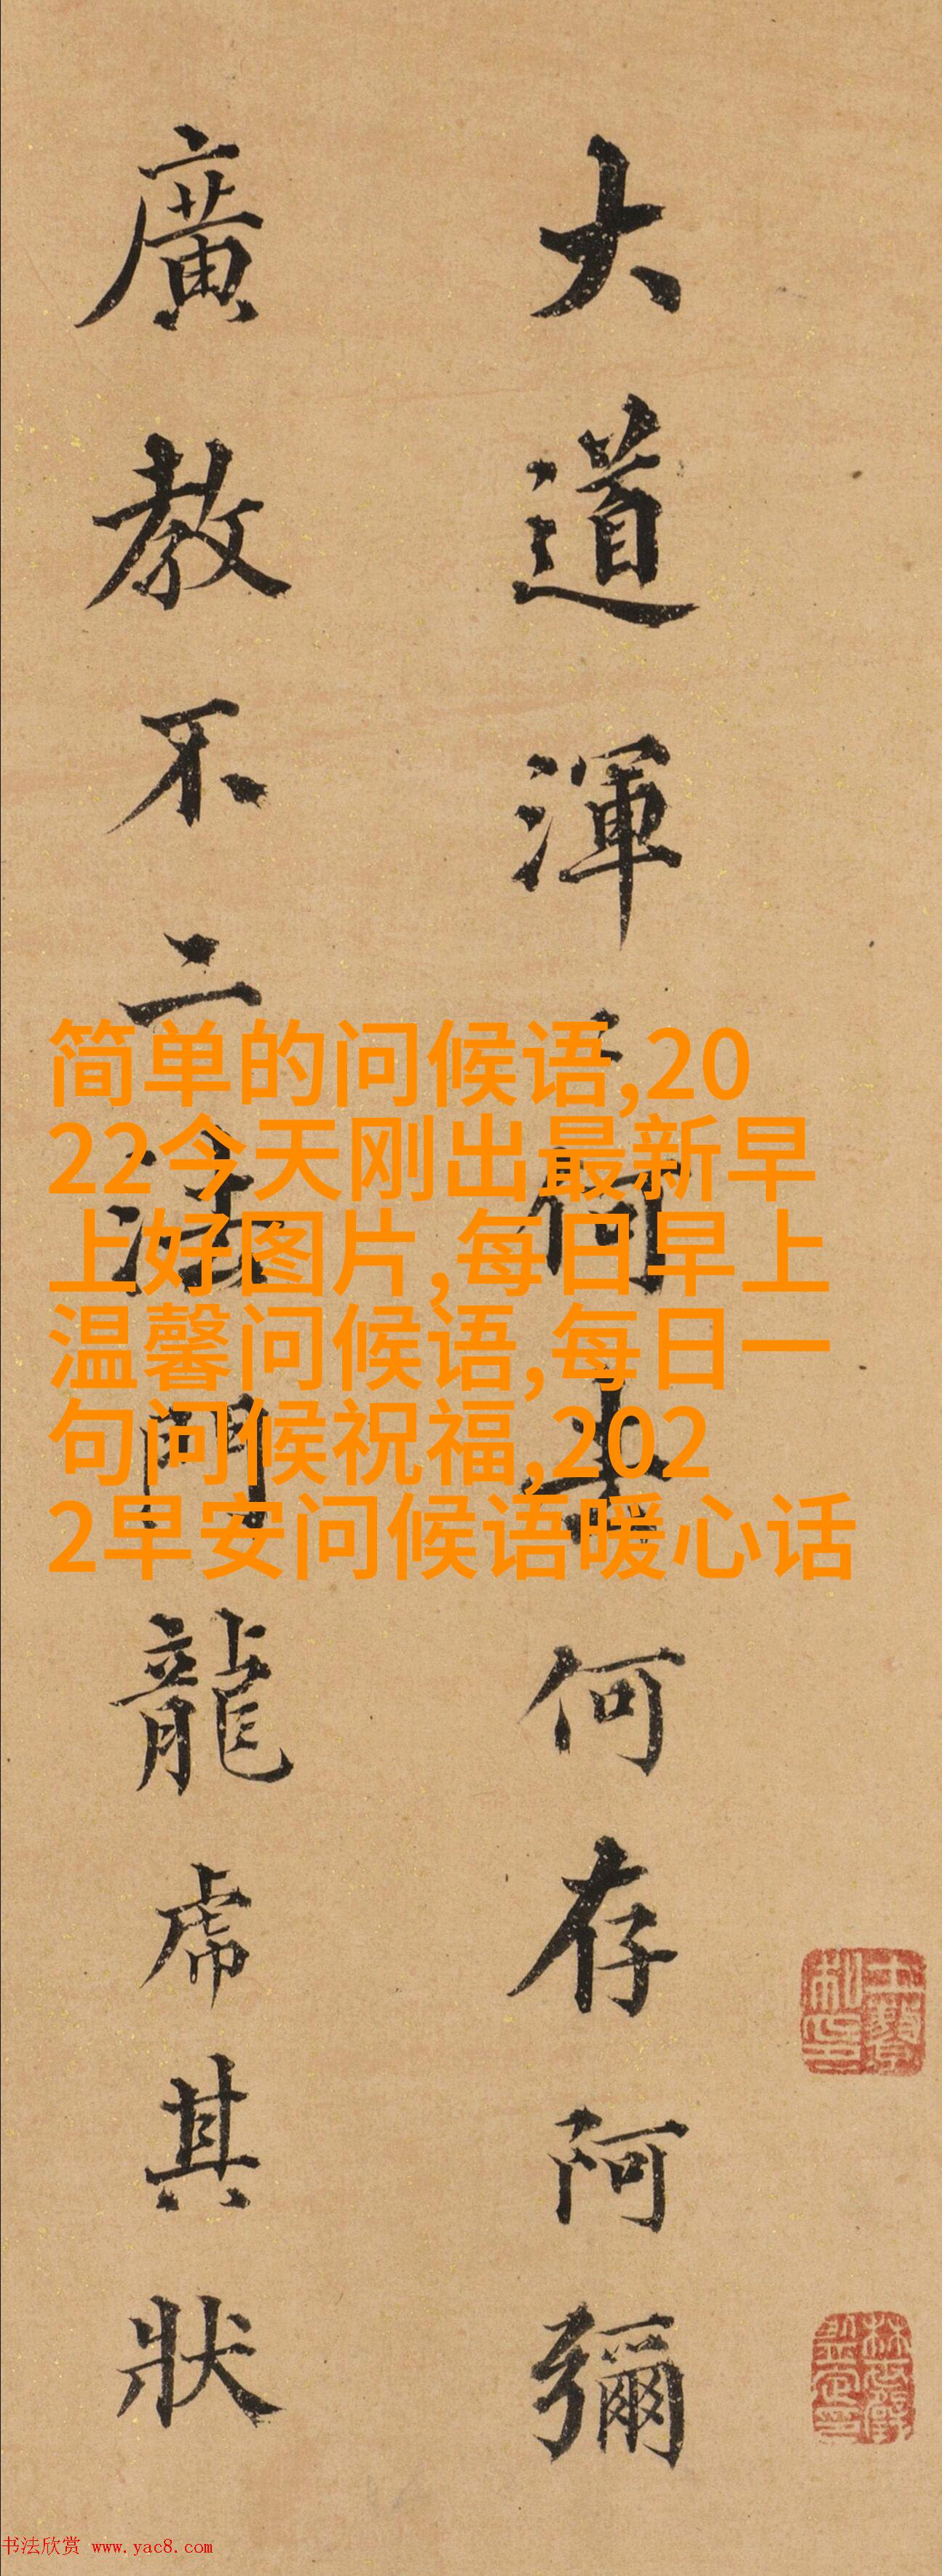 大道渾〻何去何存阿彌
廣教不二法門龍虎其狀
简单的问候语,20
22今天刚出最新早
上好图片,每日早上
温馨问候语,每日一
句问候祝福,202
2早安问候语暖心话
书法欣赏 www.yac8.com